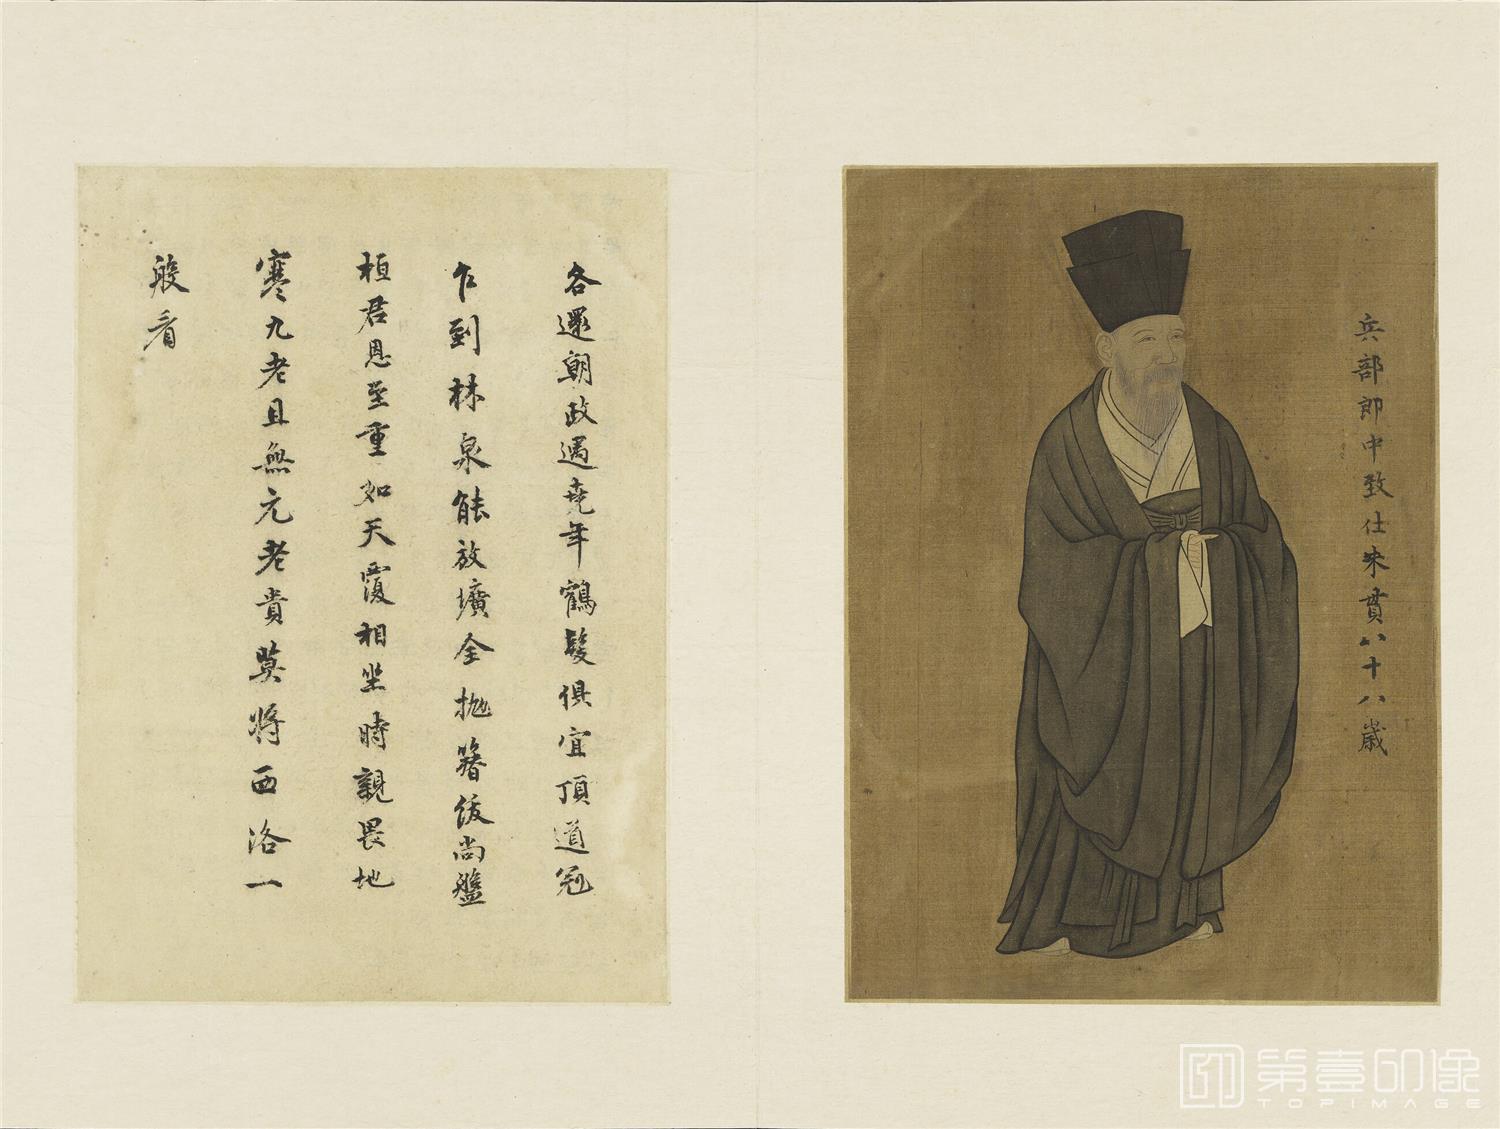 兵部郎中致仕朱貫八十八歲
各還朝政遇堯年鶴髮俱宜頂道冠
乍到林泉能放壙全拋簪紱尚盤
桓君恩至重如天覆相坐時親畏地
寒九老且無元老貴莫將西洛一
般看
第壹印像
TOPIMAGE